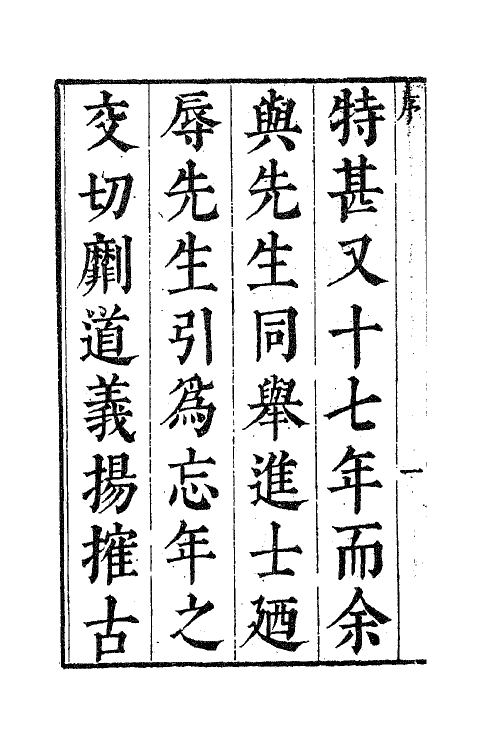 序
一
特甚又十七年而余
與先生同舉進士廼
辱先生引為忘年之
交切劘道義揚搉古